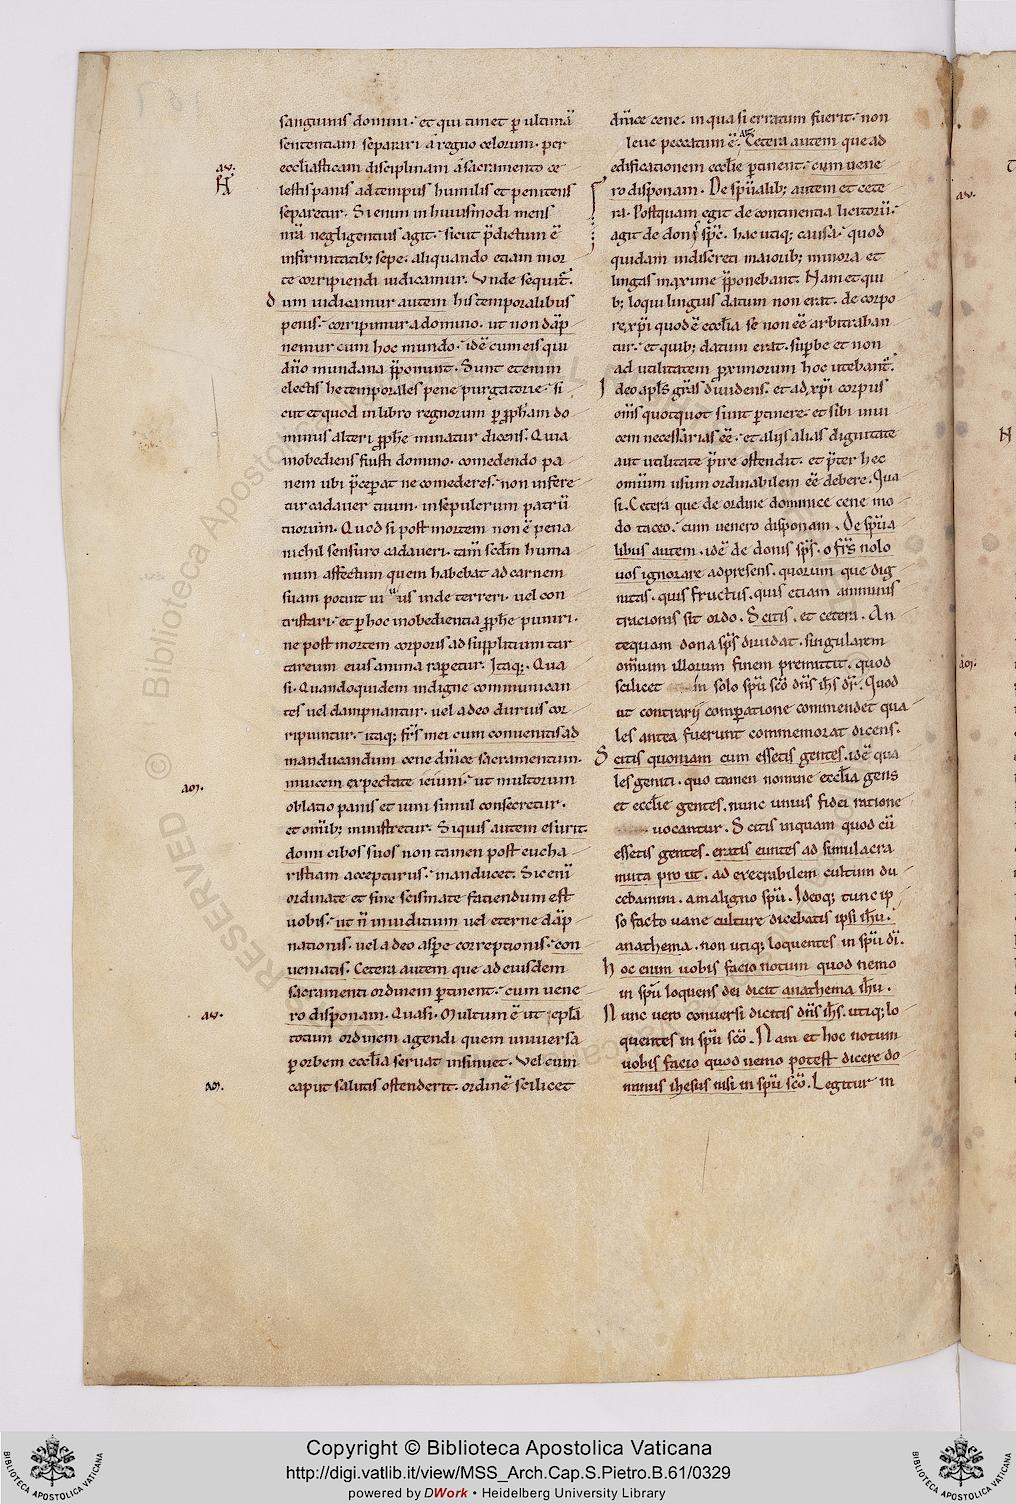 sanguinis domini · et qui timet p ultimā
sententiam separari a regno celorum · per
ecclīasticam disciplinam a sacramento ce
aw.
lestis panis ad tempus humilis et penitens
separetur · Si enim in huiusmodi mens
nr̄a negligentius agit · sicut p̄dictum ē
infirmitatib; sepe · aliquando etiam mor
te corripiendi iudicamur · Vnde sequit᷑ ·
Dum iudicamur autem his temporalibus
penis · corripimur a domino · ut non dāp
nemur cum hoc mundo · idē cum eis qui
dn̄o mundana p̄ponunt · Sunt etenim
electis he temporales pene purgatorie · si
cut et quod in libro regnorum p p̄pham do
minus alteri p̄phe minatur dicens · Quia
inobediens fuisti domino · comedendo pa
nem ubi p̄ceperat ne comederes · non infere
tur cadauer tuum · in sepulcrum patrū
tuorum · Quod si post mortem non ē pena
nichil sensuro cadaueri · tam̄ scd̄m huma
num affectum quem habebat ad carnem
suam potuit uiuus inde terreri · uel con
tristari · et p hoc inobedientia p̄phe puniri ·
ne post mortem corporis ad supplitium tar
tareum eius anima raperetur · Itaq; · Qua
si · Quandoquidem indigne communican
tes uel dampnantur · uel adeo durius cor
ripiuntur · itaq; fr̄s mei cum conuenitis ad
manducandum cene dn̄ice sacramentum ·
inuicem expectate ieiuni · ut multorum
aɱ.
oblatio panis et uini simul consecretur ·
et om̄ib; ministretur · Siquis autem esurit ·
domi cibos suos non tamen post eucha
ristiam accepturus · manducet · Sic enī
ordinate et sine scismate faciendum est
uobis · ut n̄ in iuditium uel eterne dāp
nationis · uel adeo asp̄e correptionis · con
ueniatis · Cetera autem que ad eiusdem
sacramenti ordinem p̄tinent · cum uene
aw.
ro disponam · Quasi · Multum ē ut ep̄la
totum ordinem agendi quem uniuersa
p orbem ecclīa seruat insinuet · Vel cum
aɱ.
caput salutis ostenderit · ordinē scilicet
dn̄ice cene · in qua si erratum fuerit · non
leue peccatum ē · Cetera autem que ad
edificationem ecclīe p̄tinent · cum uene
ro disponam · De sp̄ualib; autem et cete
ra · Postquam egit de continentia licitorū ·
agit de donis sp̄c · hac utiq; causa · quod
quidam indiscreti maiorib; minora et
lingas maxime p̄ponebant · Nam et qui
b; loqui linguis datum non erat · de corpo
re xp̄i quod ē ecclīa se non eē arbitraban
tur · et quib; datum erat · sup̄be et non
ad utilitatem p̄ximorum hoc utebant᷑ ·
Ideo apl̄s gr̄as diuidens · et ad xp̄i corpus
om̄s quotquot sunt p̄tinere · et sibi inui
cem necessarias eē · et alijs alias dignitate
aut utilitate p̄ire ostendit · et p̄ter hec
omnium usum ordinabilem eē debere · Qua
si · Cetera que de ordine dominice cene mo
do taceo · cum uenero disponam · De sp̄ua
libus autem · idē de donis sp̄s · o fr̄s nolo
uos ignorare ad presens · quorum que dig
nitas · quis fructus · quis etiam amminis
trationis sit ordo · Scitis · et cetera · An
tequam dona sp̄s diuidat · singularem
om̄ium illorum finem premittit · quod
scilicet in solo sp̄u sc̄o dn̄s ih̄s dr̄ · Quod
ut contrarij comparatione commendet qua
les antea fuerunt commemorat dicens ·
Scitis quoniam cum essetis gentes · idē qua
les geniti · quo tamen nomine ecclīa gens
et ecclīe gentes · nunc unius fidei ratione
uocantur · Scitis inquam quod cū
essetis gentes · eratis euntes ad simulacra
muta pro ut · ad execrabilem cultum du
cebamini · a maligno sp̄u · Ideoq; tunc ip
so facto uane culture dicebatis ipsi ih̄u ·
anathema · non utiq; loquentes in sp̄u dī ·
Hoc enim uobis facio notum quod nemo
in sp̄u loquens dei dicit anathema ih̄u ·
Nunc uero conuersi dicitis dn̄s ih̄s · utiq; lo
quentes in sp̄u sc̄o · Nam et hoc notum
uobis facio quod nemo potest dicere do
minus ihesus nisi in sp̄u sc̄o · Legitur in
aw.
aɱ.
© Biblioteca Apostolica Vaticana
RESERVED
Copyright © Biblioteca Apostolica Vaticana
http://digi.vatlib.it/view/MSS_Arch.Cap.S.Pietro.B.61/0329
powered by DWork • Heidelberg University Library
BIBLIOTECA APOSTOLICA VATICANA
BIBLIOTECA APOSTOLICA VATICANA